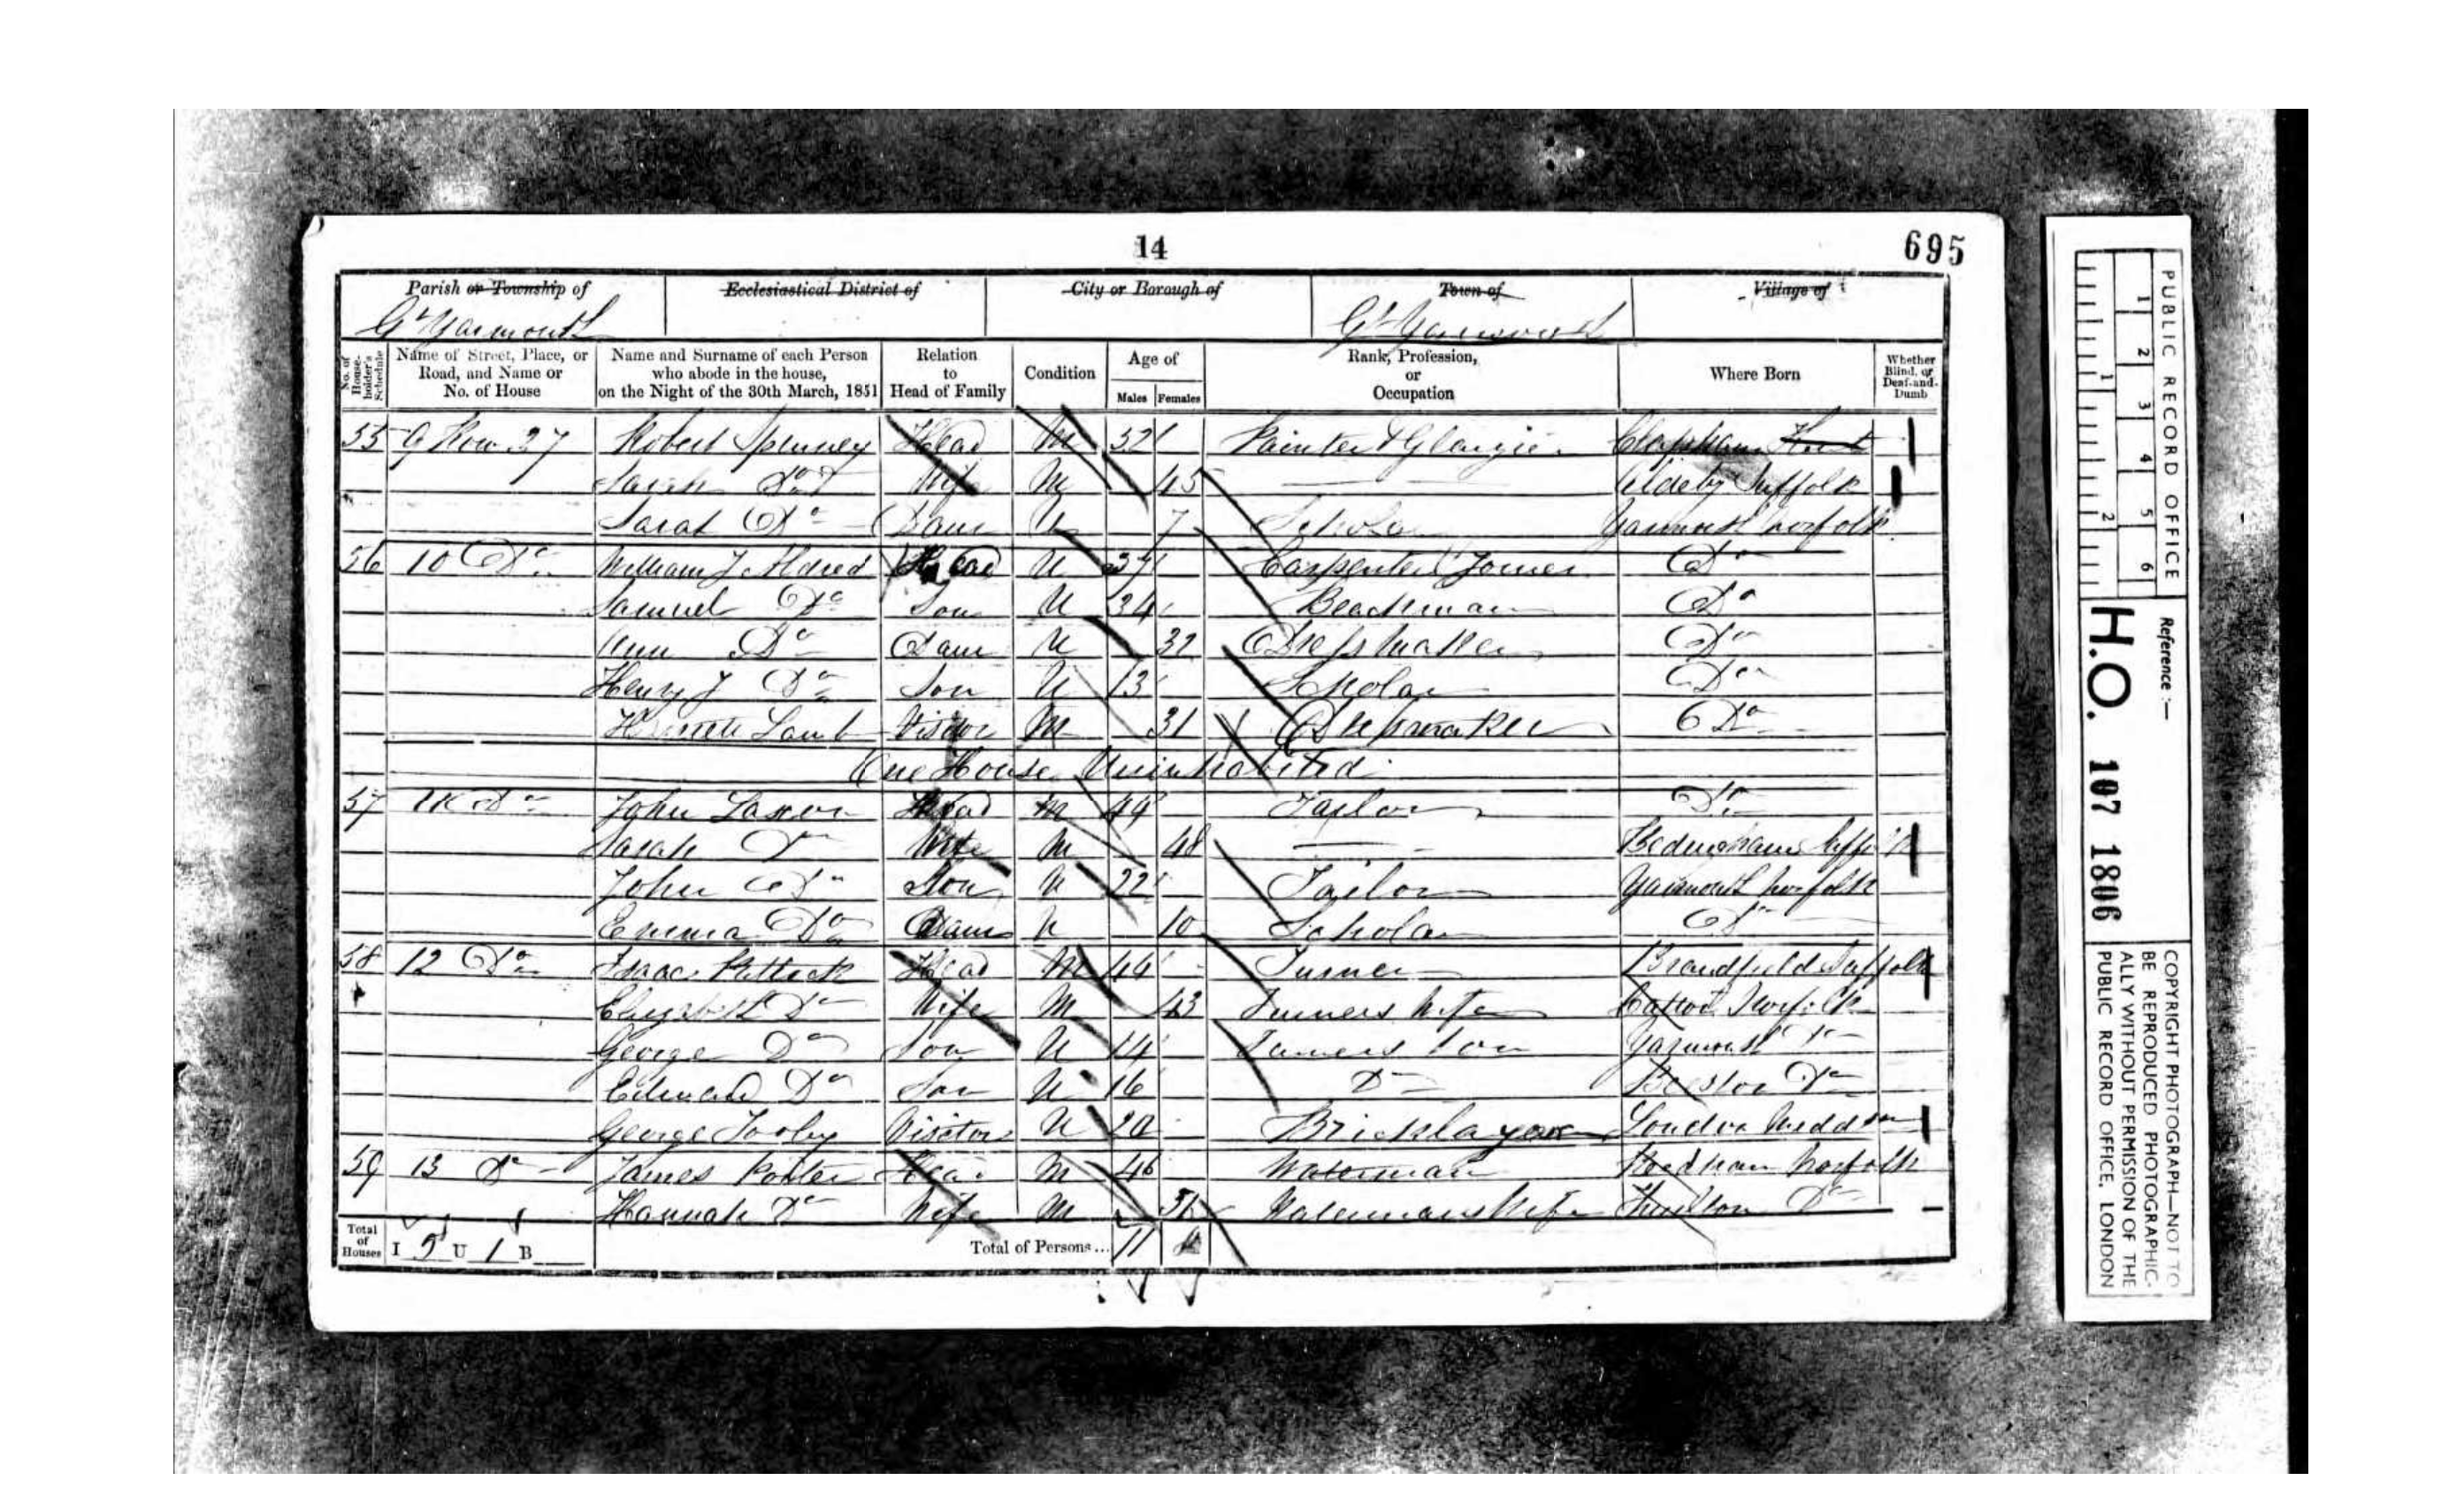 14
695
Parish or Township of Ecclesiastical District of City or Borough of Town of Village of
Gt Yarmouth Gt Yarmouth
No. of House-holder's Schedule Name of Street, Place, or Road, and Name or No. of House Name and Surname of each Person who abode in the house, on the Night of the 30th March, 1851 Relation to Head of Family Condition Age of Males Females Rank, Profession, or Occupation Where Born Whether Blind, or Deaf-and-Dumb
55 9 Row 27 Robert Head M 52 Painter & Glazier Clapham
Sarah Do Wife M 45 Aldeby Suffolk
Sarah Do Daur U 7 Scholar Yarmouth Norfolk
56 10 Do William J Aldred Head U 37 Carpenter Joiner Do
Samuel Do Son U 34 Beachman Do
Ann Do Daur U 32 Dressmaker Do
Henry J Do Son U 13 Scholar Do
Lamb Visitor M 31 Dressmaker Do
One House Uninhabited
57 11 Do John Head M 49 Tailor Do
Sarah Do Wife M 48
John Do Son U 22 Tailor Yarmouth Norfolk
Emma Do Daur U 10 Scholar Do
58 12 Do Isaac Head M 44 Turner Suffolk
Elizabeth Do Wife M 43 Turners Wife Norfolk
George Do Son U 14 Turners Son Yarmouth Do
Edward Do Son U 16 Do Do
George Visitor U 20 Bricklayer London
59 13 Do James Porter Head M 46 Waterman Norfolk
Hannah Do Wife M Watermans Wife Do
Total of Houses I 5 U 1 B Total of Persons... 11
PUBLIC RECORD OFFICE
1 2 3 4 5 6
1 2
Reference :—
H.O. 107 1806
COPYRIGHT PHOTOGRAPH—NOT TO
BE REPRODUCED PHOTOGRAPHIC-
ALLY WITHOUT PERMISSION OF THE
PUBLIC RECORD OFFICE, LONDON